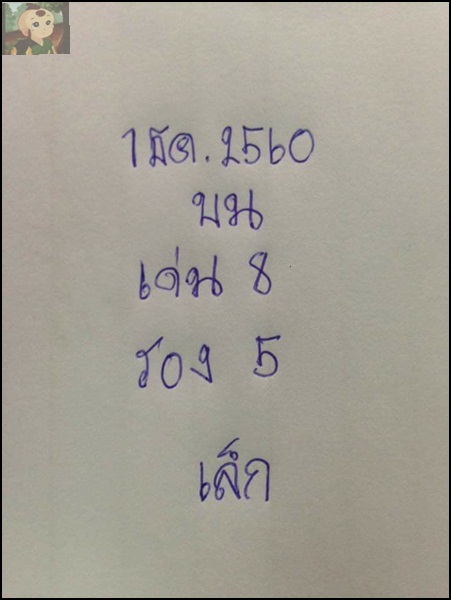 1 ธค. 2560
บน
เด่น 8
รอง 5
เล็ก